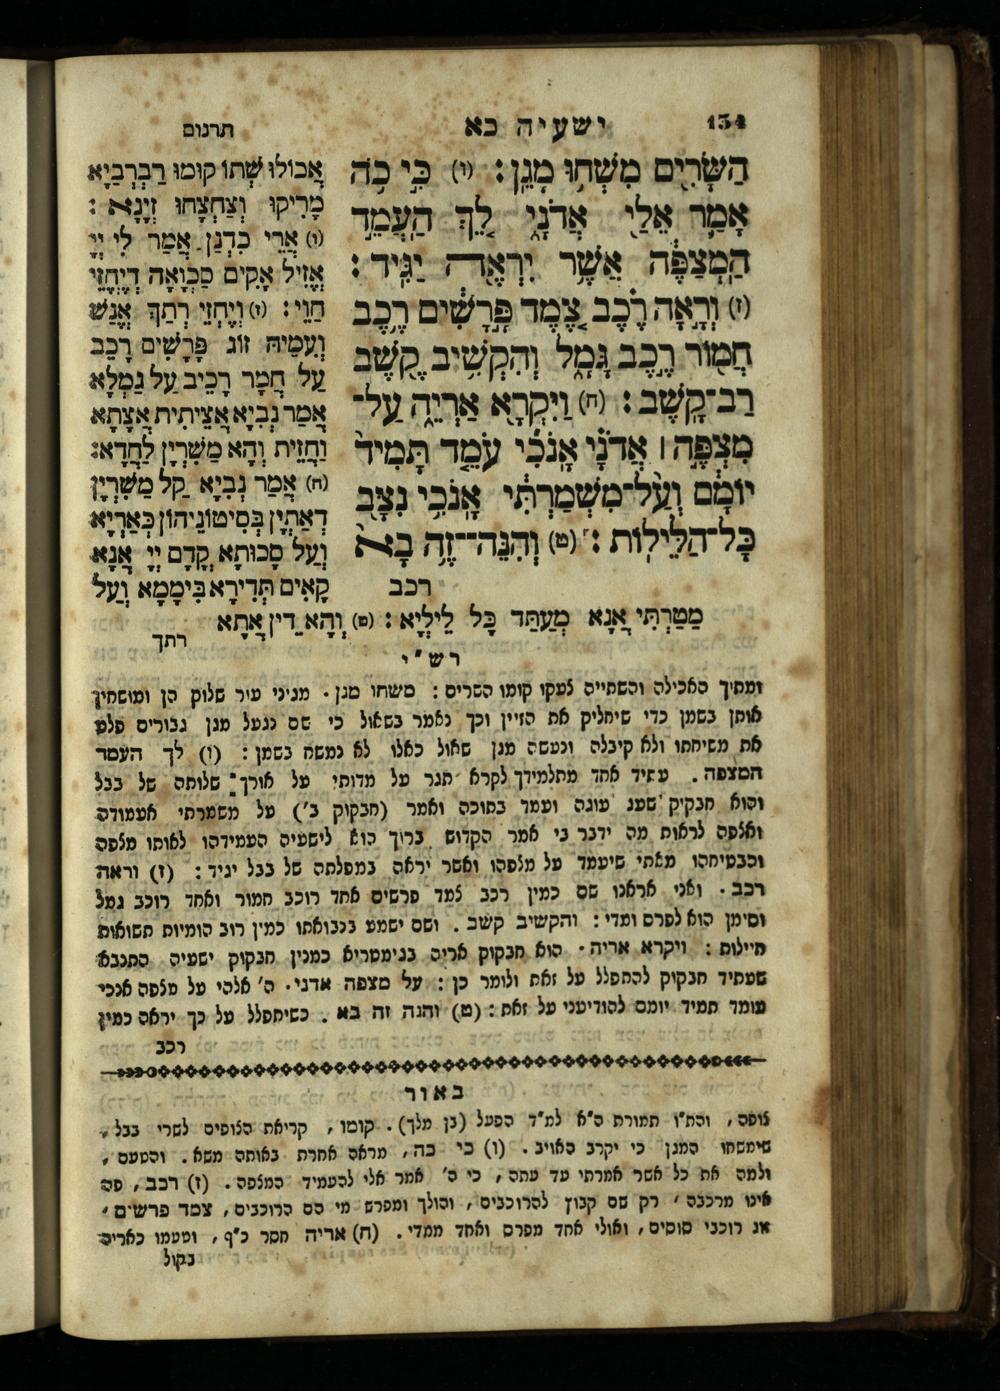 134
ישעיה כא
תרגום
הַשָּׂרִים מִשְׁחוּ מָגֵן׃ (ו) כִּי כֹה
אָמַר אֵלַי אֲדֹנָי לֵךְ הַעֲמֵד
הַמְצַפֶּה אֲשֶׁר יִרְאֶה יַגִּיד׃
(ז) וְרָאָה רֶכֶב צֶמֶד פָּרָשִׁים רֶכֶב
חֲמוֹר רֶכֶב גָּמָל וְהִקְשִׁיב קֶשֶׁב
רַב־קָשֶׁב׃ (ח) וַיִּקְרָא אַרְיֵה עַל־
מִצְפֶּה ׀ אֲדֹנָי אָנֹכִי עֹמֵד תָּמִיד
יוֹמָם וְעַל־מִשְׁמַרְתִּי אָנֹכִי נִצָּב
כָּל־הַלֵּילוֹת׃ (ט) וְהִנֵּה־זֶה בָא
רכב
אֲכוֹלוּ שְׁתוֹ קוּמוּ רַבְרְבַיָּא
מָרִיקוּ וְצַחְצָחוּ זְיָנָא׃
(ו) אֲרֵי כִדְנַן אֲמַר לִי יְיָ
אֱזֵיל אָקִים סַכְוָאָה דְיֶחֱזֵי
חַוֵּי׃ (ז) וְיֶחְזֵי רְתַךְ אֱנָשׁ
וְעִמֵּיהּ זוֹג פָּרָשִׁים רָכֵב
עַל חֲמָר רָכֵיב עַל גַּמְלָא
אֲמַר נְבִיָּא אֲצֵיתִית אֲצָתָא
וַחֲזֵית וְהָא מַשִּׁרְיָן לַחֲדָא׃
(ח) אֲמַר נְבִיָּא קַל מַשִּׁרְיָן
דְאַתְיָן בְּסִיטוֹנֵיהוֹן כְּאַרְיָא
וְעַל סָכוּתָא קֳדָם יְיָ אֲנָא
קָאִים תְּדִירָא בִּימָמָא וְעַל
מַטַרְתִּי אֲנָא מְעַתַּד כָּל לֵילְיָא׃ (ט) וְהָא דֵין אֲתָא
רתך
רש״י
ומתיך האכילה והשתייה לעקו קומו השרים : משחו מגן . מגיני עור שלוק הן ומושחין
אותן בשמן כדי שיחליק את הזיין וכך נאמר בשאול כי שם נגעל מגן גבורים פלט
את משיחתו ולא קיבלה ונעשה מגן שאול כאלו לא נמשח בשמן : (ו) לך העמד
המצפה . עתיד אחד מתלמידך לקרא תגר על מדותי על אורך שלותה של בבל
והוא חבקוק שעג עוגה ועמד בתוכה ואמר (חבקוק ב׳) על משמרתי אעמודה
ואצפה לראות מה ידבר בי אמר הקדוש ברוך הוא לישעיה העמידהו לאותו מצפה
והבטיחהו מאתי שיעמד על מצפהו ואשר יראה במפלתה של בבל יגיד : (ז) וראה
רכב . ואני אראנו שם כמין רכב צמד פרשים אחד רוכב חמור ואחד רוכב גמל
וסימן הוא לפרס ומדי : והקשיב קשב . ושם ישמע בנבואתו כמין רוב הומיות תשואות
חיילות : ויקרא אריה . הוא חבקוק אריה בגימטריא כמנין חבקוק ישעיה התנבא
שעתיד חבקוק להתפלל על זאת ולומר כן : על מצפה אדני . ה׳ אלהי על מצפה אנכי
עומד תמיד יומם להודיעני על זאת : (ט) והנה זה בא . כשיתפלל על כך יראה כמין
רכב
באור
צופה , והת״ו תמורת ה״א למ״ד הפעל (בן מלך) . קומו , קריאת הצופים לשרי בבל ,
שימשחו המגן כי יקרב האויב . (ו) כי כה , מראה אחרת באותה משא . והטעם ,
ולמה את כל אשר אמרתי עד עתה , כי ה׳ אמר אלי להעמיד המצפה . (ז) רכב , פה
אינו מרכבה , רק שם קבוץ להרוכבים , והולך ומפרש מי הם הרוכבים , צמד פרשים ,
זוג רוכבי סוסים , ואולי אחד מפרס ואחד ממדי . (ח) אריה חסר כ״ף , וטעמו כאריה
בקול